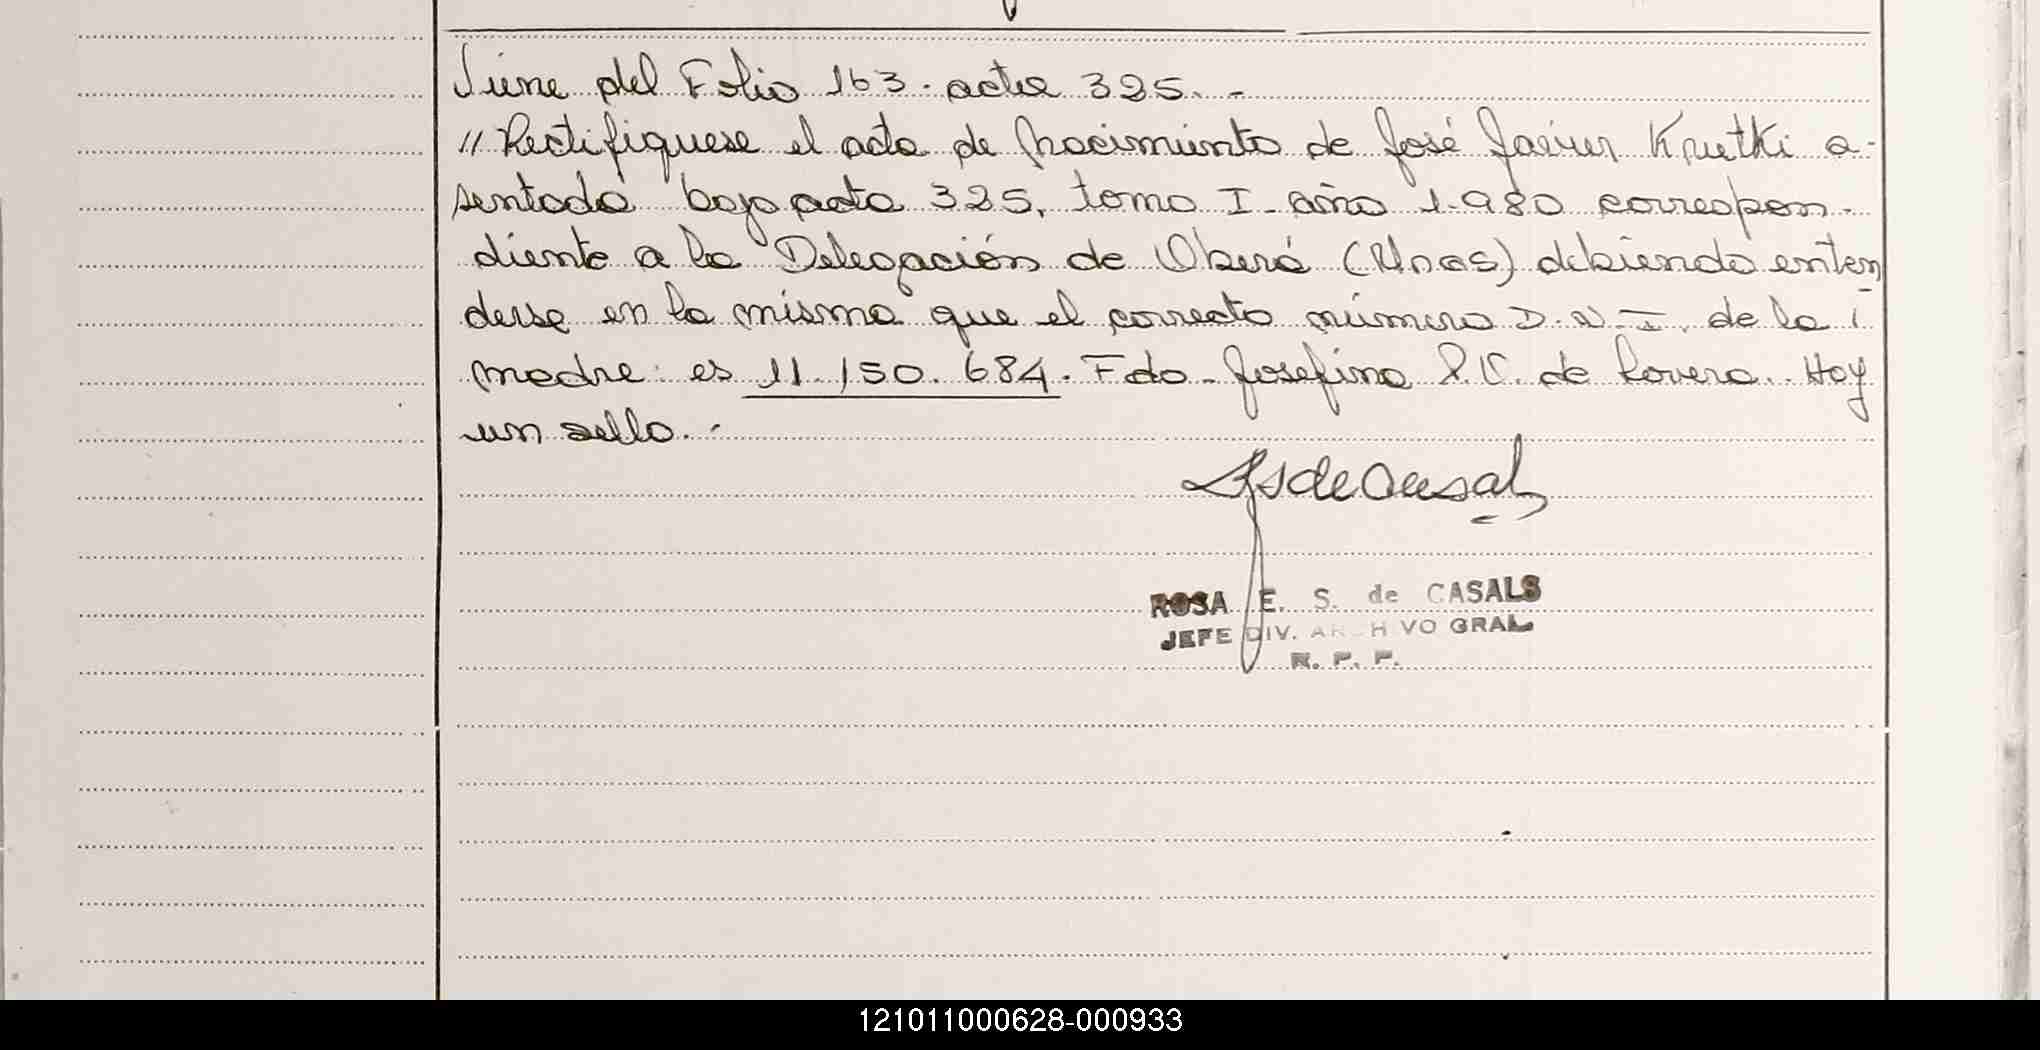 Viene del Folio 163. acta 325. -
"Rectifiquese el acta de Nacimiento de José Javier Krutki a-
sentada bajo acta 325, tomo I - año 1.980 correspon-
diente a la Delegación de Oberá (Mnes) debiendo enten
derse en la misma que el correcto número D.N.I. de la
madre es 11.150.684. Fdo. Josefina P. C. de Lovera. Hay
un sello. -
ROSA E. S. de CASALS
JEFE DIV. ARCHIVO GRAL
R. P. P.
121011000628-000933